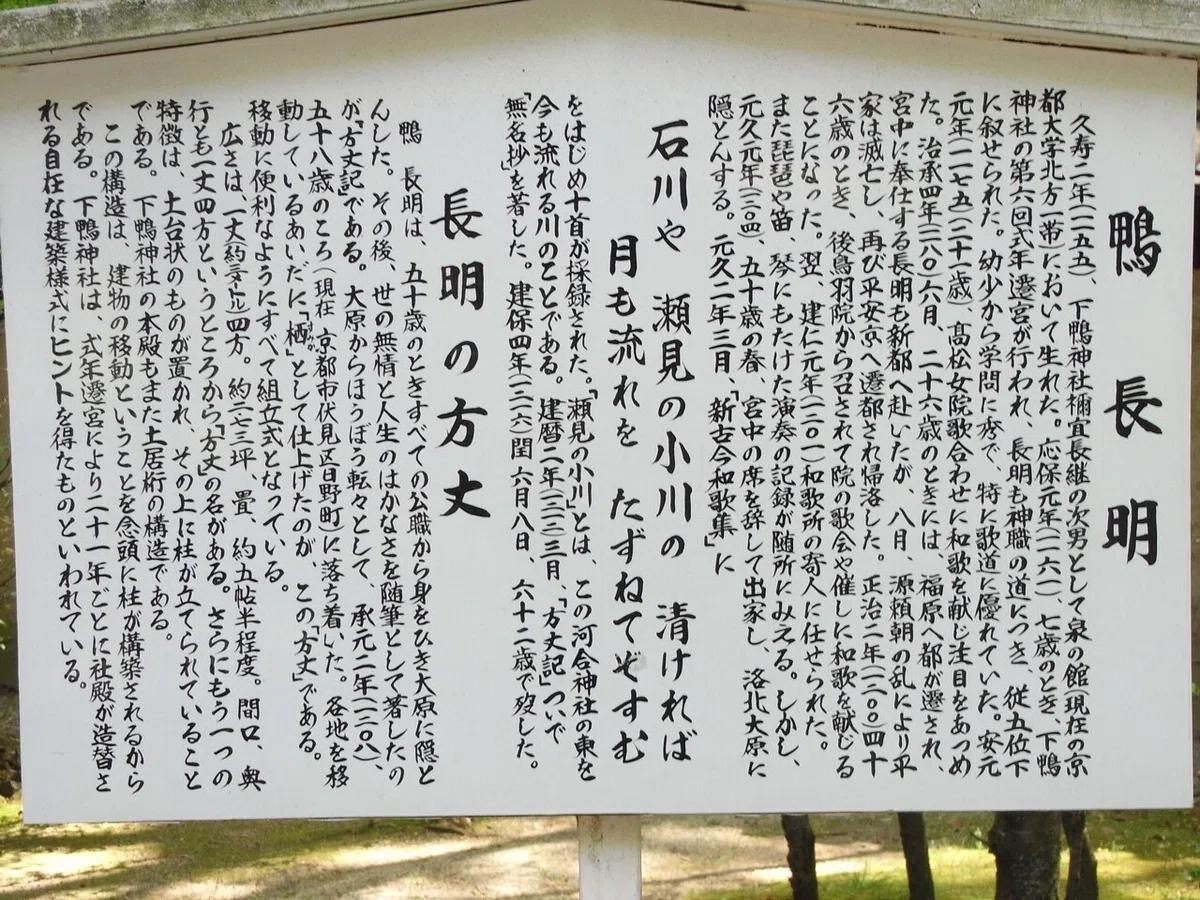 鴨 長 明
久寿二年(一一五五)、下鴨神社禰宜長継の次男として泉の館(現在の京
都大学北方一帯)において生れた。応保元年(一一六一)、七歳のとき、下鴨
神社の第六回式年遷宮が行われ、長明も神職の道につき、従五位下
に叙せられた。幼少から学問に秀で、特に歌道に優れていた。安元
元年(一一七五)(二十一歳)、髙松女院歌合わせに和歌を献じ注目をあつめ
た。治承四年(一一八〇)六月、二十六歳のときには、福原へ都が遷され、
宮中に奉仕する長明も新都へ赴いたが、八月、源頼朝の乱により平
家は滅亡し、再び平安京へ遷都され帰洛した。正治二年(一二〇〇)四十
六歳のとき、後鳥羽院から召されて院の歌会や催しに和歌を献じる
ことになった。翌、建仁元年(一二〇一)和歌所の寄人に任せられた。
また琵琶や笛、琴にもたけた演奏の記録が随所にみえる。しかし、
元久元年(一二〇四)、五十歳の春、宮中の席を辞して出家し、洛北大原に
隠とんする。元久二年三月、「新古今和歌集」に
石川や 瀬見の小川の 清ければ
月も流れを たずねてぞすむ
をはじめ十首が採録された。「瀬見の小川」とは、この河合神社の東を
今も流れる川のことである。建暦二年(一二一二)三月、「方丈記」ついで
「無名抄」を著した。建保四年(一二一六)閏六月八日、六十二歳で歿した。
長明の方丈
鴨 長明は、五十歳のときすべての公職から身をひき大原に隠と
んした。その後、世の無情と人生のはかなさを随筆として著したの
が「方丈記」である。大原からほうぼう転々として、承元二年(一二〇八)、
五十八歳のころ(現在 京都市伏見区日野町)に落ち着いた。各地を移
動しているあいだに「栖」として仕上げたのが、この「方丈」である。
移動に便利なようにすべて組立式となっている。
広さは、一丈(約三・〇三m)四方。約二・七三坪、畳、約五帖半程度。間口、奥
行とも一丈四方というところから「方丈」の名がある。さらにもう一つの
特徴は、土台状のものが置かれ、その上に柱が立てられていること
である。下鴨神社の本殿もまた土居桁の構造である。
この構造は、建物の移動ということを念頭に柱が構築されるから
である。下鴨神社は、式年遷宮により二十一年ごとに社殿が造替さ
れる自在な建築様式にヒントを得たものといわれている。